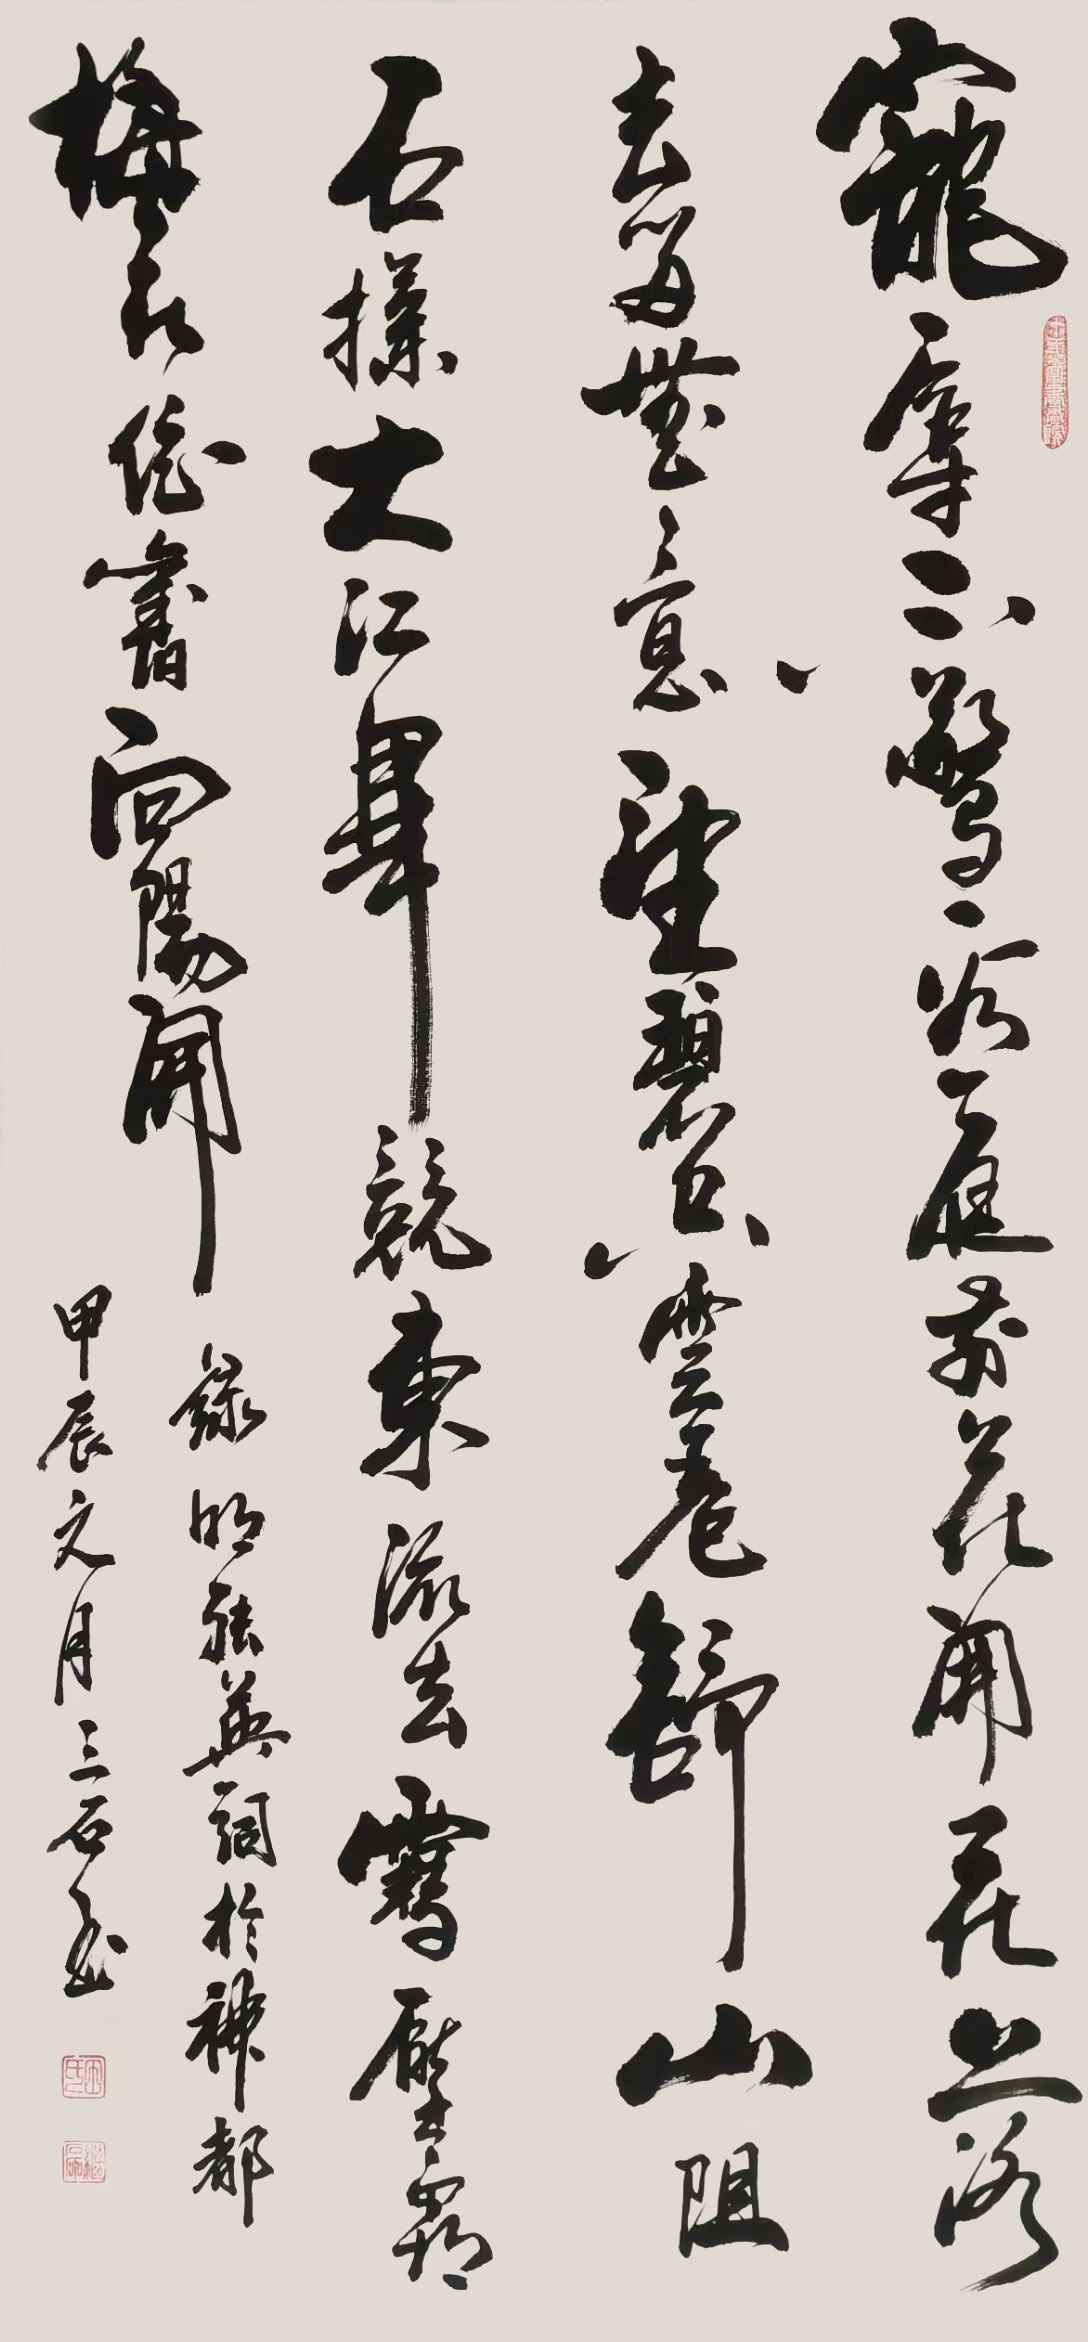 寵辱不驚庭前花開花落
去留無意望碧空雲卷舒山阻
石大江畢競東流去雪壓霜
梅花依舊向陽開
錄明張英詞於神都
甲辰文月三石書